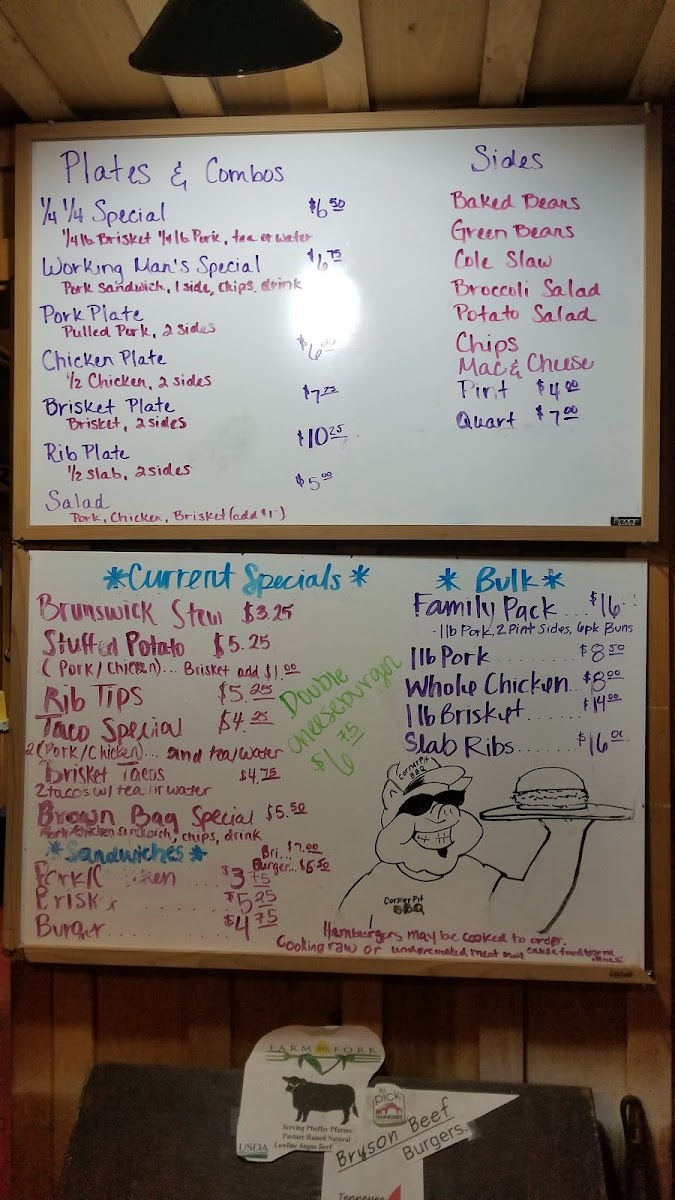 Plates & Combos
1/4 1/4 Special $6.50
1/4 lb Brisket 1/4 lb Pork, tea or water
Working Man's Special $6.75
Pork Sandwich, 1 side, chips, drink
Pork Plate
Pulled Pork, 2 sides
$6
Chicken Plate
1/2 Chicken, 2 sides
$7.25
Brisket Plate
Brisket, 2 sides
$10.25
Rib Plate
1/2 slab, 2 sides
$5.00
Salad
Pork, Chicken, Brisket (add $1-)
Sides
Baked Beans
Green Beans
Cole Slaw
Broccoli Salad
Potato Salad
Chips
Mac & Cheese
Pint $4.00
Quart $7.00
*Current Specials*
Brunswick Stew $3.25
Stuffed Potato $5.25
(Pork/Chicken)... Brisket add $1.00
Rib Tips $5.25
Taco Special $4.25
2 (Pork/Chicken)... and tea/water
Brisket Tacos $4.75
2 tacos w/ tea or water
Brown Bag Special $5.50
Pork/chicken sandwich, chips, drink
Bri... $7.00
Burger... $6.50
*Sandwiches*
Pork/C ken $3.75
Brisk $5.25
Burger $4.75
Double
Cheeseburger
$6.75
* Bulk *
Family Pack... $16
- 1lb Pork, 2 Pint Sides, 6pk Buns
1lb Pork $8.50
Whole Chicken... $8.00
1lb Brisket $14.00
Slab Ribs $16.00
Corner Pit
BBQ
Corner Pit
BBQ
Hamburgers may be cooked to order.
Cooking raw or undercooked meat may cause foodborne
illness
FARM TO FORK
Serving Pfeiffer Pfarms
Pasture Raised Natural
Lowline Angus Beef
USDA
pick
TENNESSEE
Bryson Beef
Burgers.